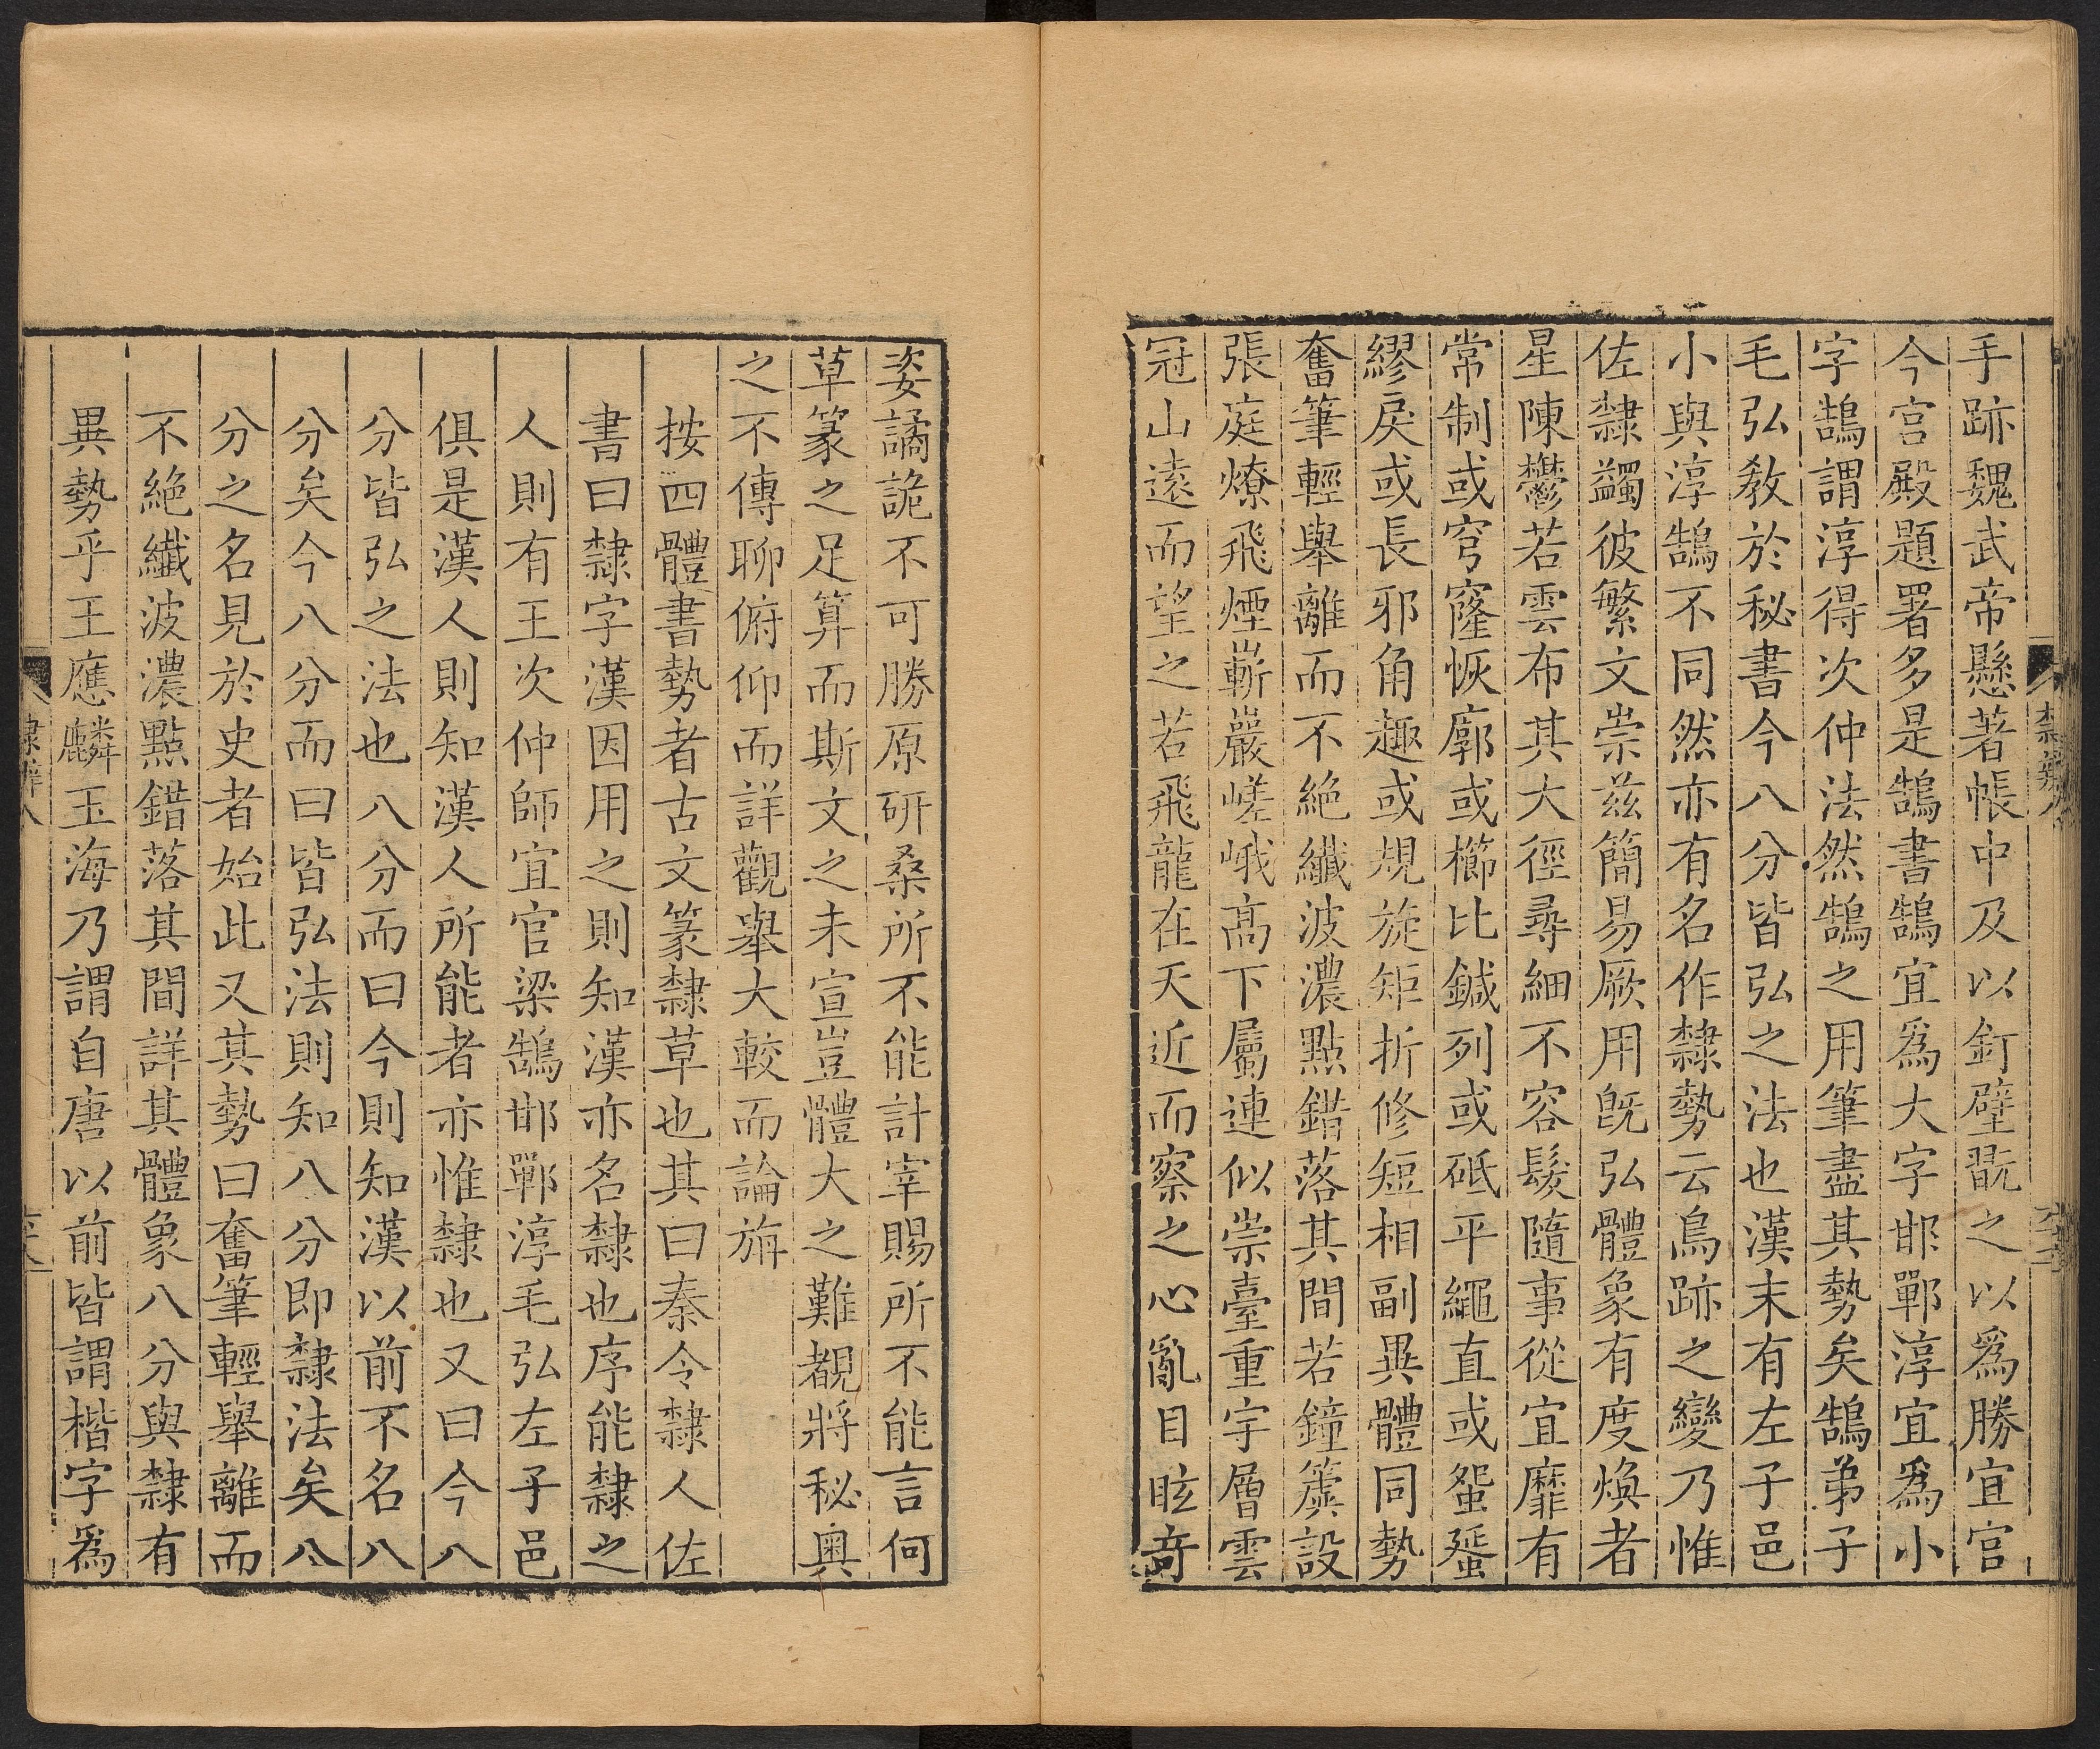 手跡魏武帝懸著帳中及以釘壁翫之以爲勝宜官
今宮殿題署多是鵠書鵠宜爲大字邯鄲淳宜爲小
字鵠謂淳得次仲法然鵠之用筆盡其勢矣鵠弟子
毛弘教於秘書今八分皆弘之法也漢末有左子邑
小與淳鵠不同然亦有名作隸勢云鳥跡之變乃惟
佐隸蠲彼繁文崇茲簡易厥用旣弘體象有度煥若
星陳鬱若雲布其大徑尋細不容髮隨事從宜靡有
常制或穹窿恢廓或櫛比鍼列或砥平繩直或蜿蜒
繆戾或長邪角趣或規旋矩折修短相副異體同勢
奮筆輕舉離而不絕纖波濃點錯落其間若鐘簴設
張庭燎飛煙嶄巖嵯峨高下屬連似崇臺重宇層雲
冠山遠而望之若飛龍在天近而察之心亂目眩奇
姿譎詭不可勝原硏桑所不能計宰賜所不能言何
草篆之足算而斯文之未宣豈體大之難覩將秘奧
之不傳聊俯仰而詳觀舉大較而論旃
按四體書勢者古文篆隸草也其曰秦令隸人佐
書曰隸字漢因用之則知漢亦名隸也序能隸之
人則有王次仲師宜官梁鵠邯鄲淳毛弘左子邑
俱是漢人則知漢人所能者亦惟隸也又曰今八
分皆弘之法也八分而曰今則知漢以前不名八
分矣今八分而曰皆弘法則知八分即隸法矣八
分之名見於史者始此又其勢曰奮筆輕舉離而
不絕纖波濃點錯落其間詳其體象八分與隸有
異勢乎王應麟玉海乃謂自唐以前皆謂楷字爲
隸辨八